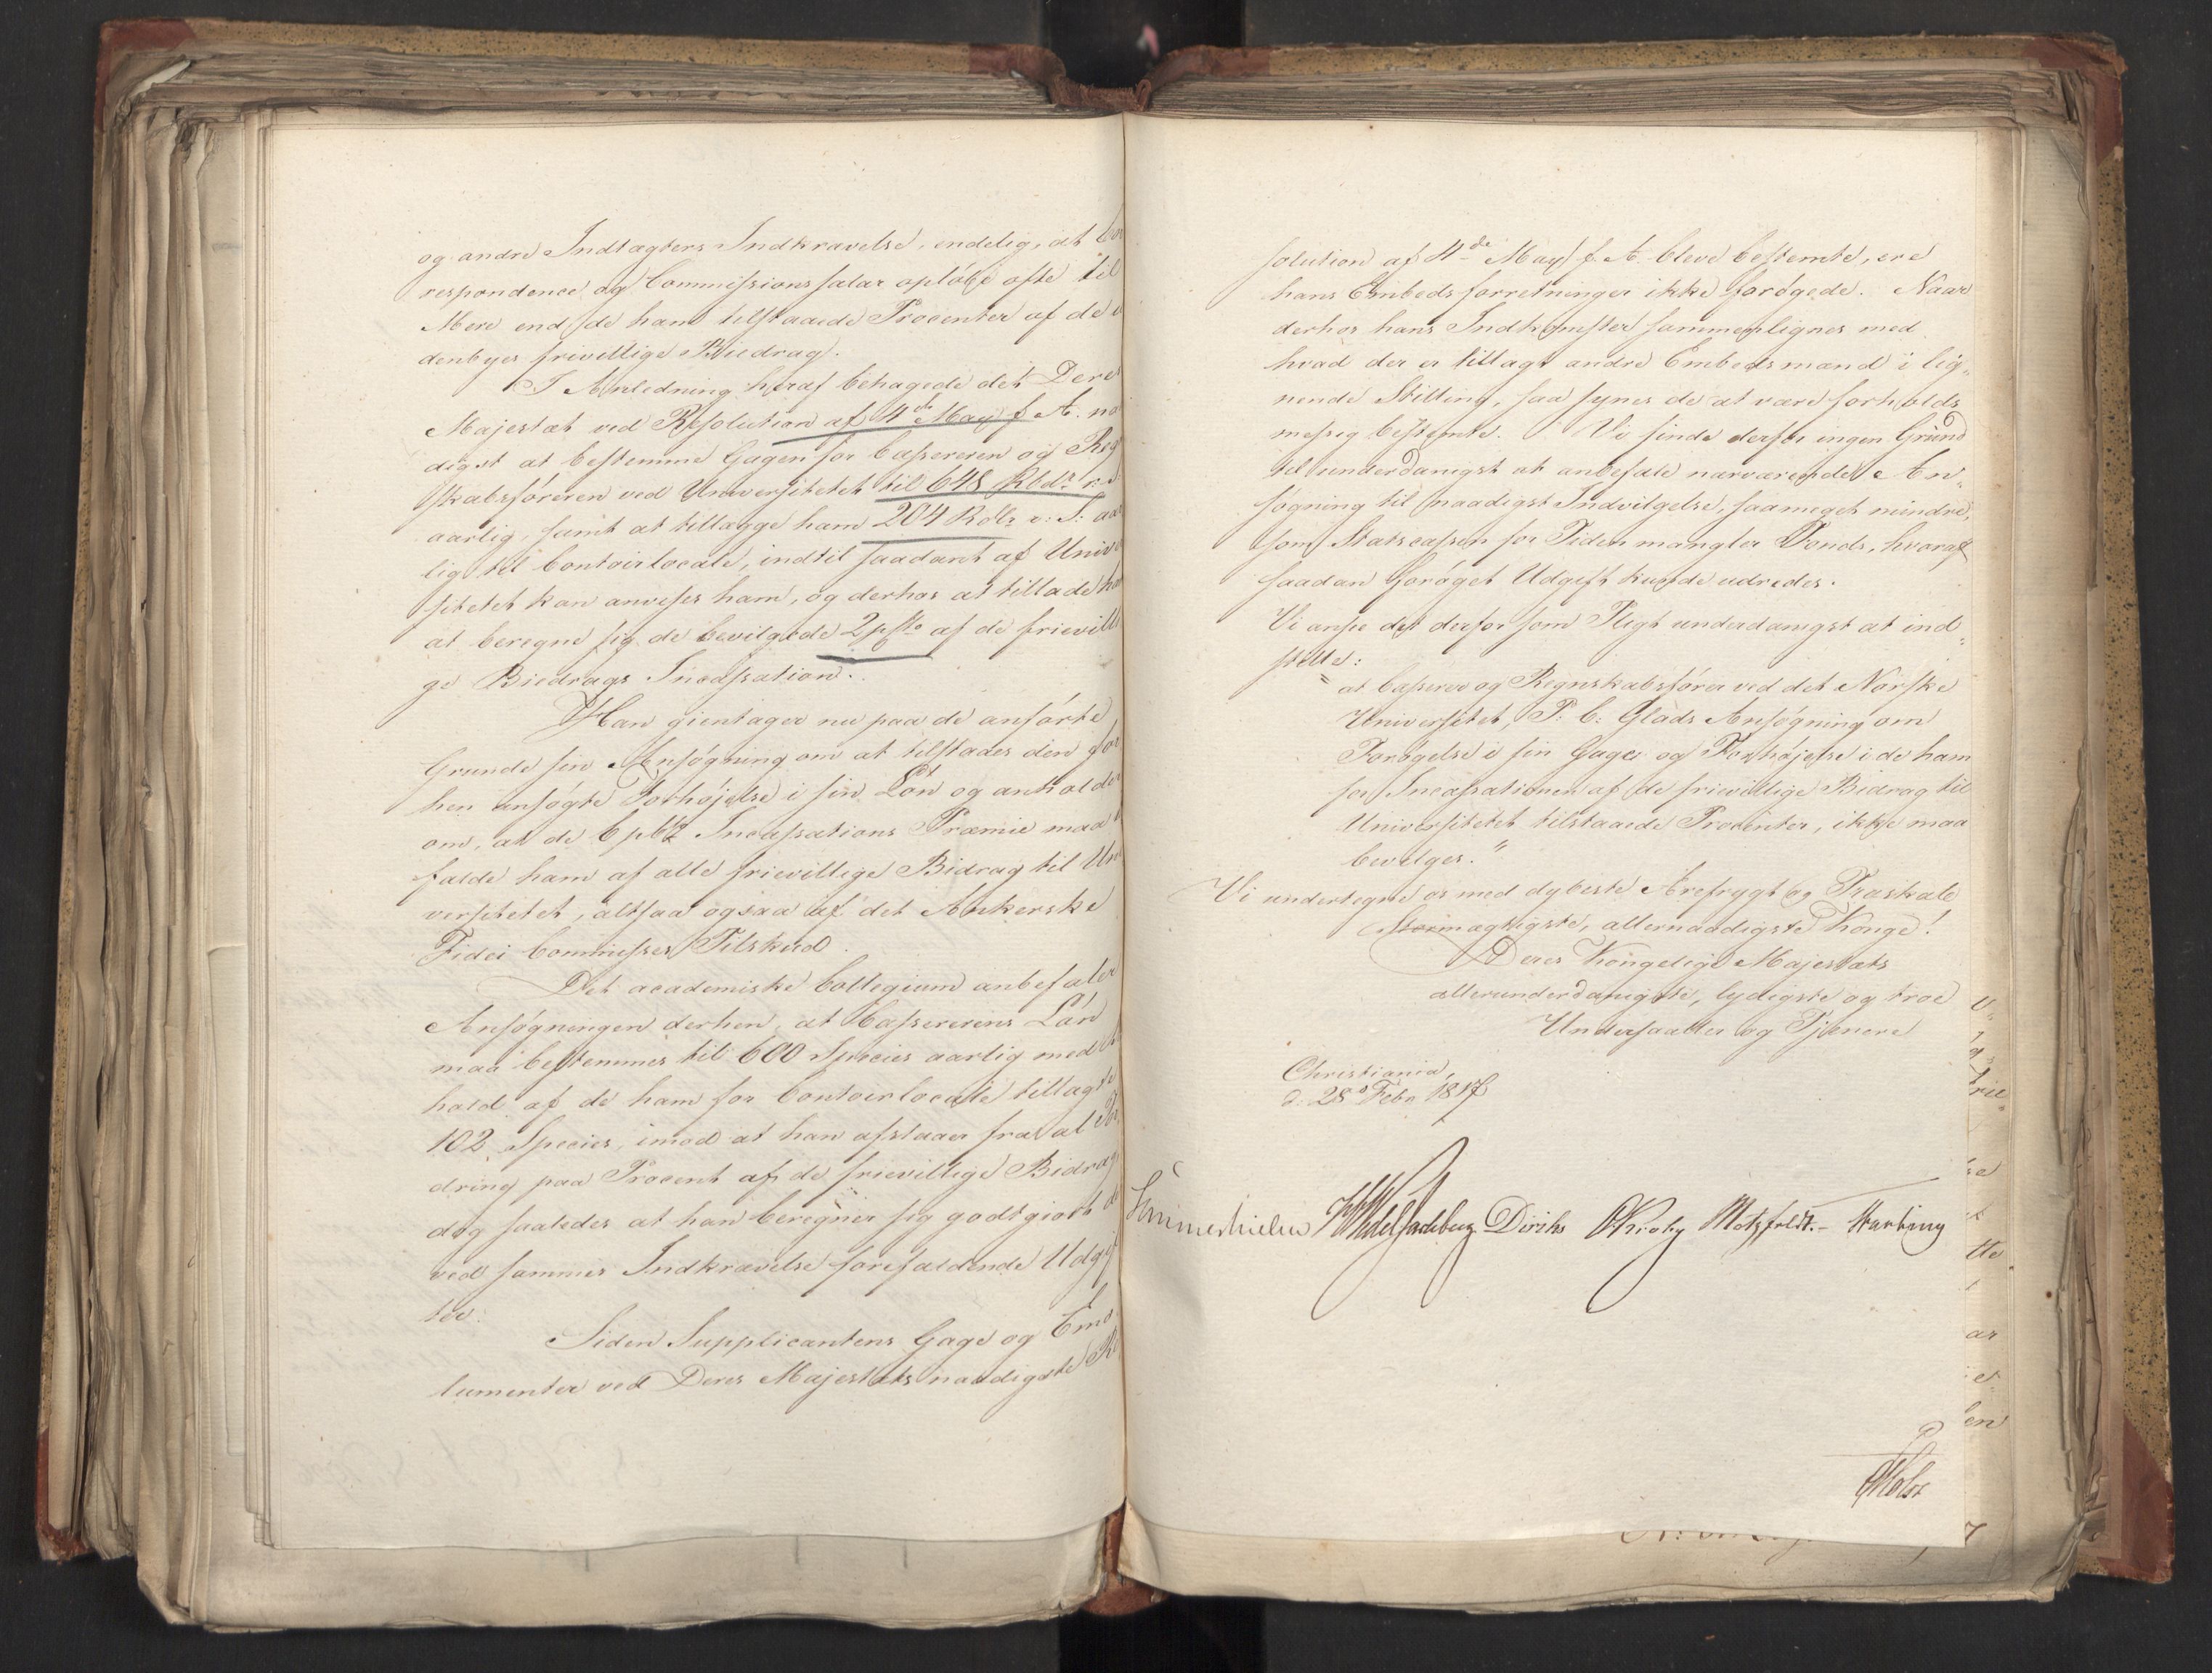 og andre Indtægters Indkrævelse, endelig, at Cor
respondence og Commissionssalar opløbe ofte til
Mere end de ham tilstaaede Procenter af de i
denbyes frivillige Biedrag.
I Anledning heraf behagede det Deres
Majestæt ved Resolution af 4de May f. A. naa
digst at bestemme Gagen for Cassereren og Reg
skabsføreren ved Universitetet til 648 Rbdr r: S
aarlig, samt at tillægge ham 204 Rdlr r: S: aar
lig til Contoirlocale, indtil saadant af Univer
sitetet kan anvises ham, og derhos at tillade ham
at beregne sig de bevilgede 2 pCto af de frievilli
ge Biedrags Incassation.
Han gientager nu paa de anførte
Grunde sin Ansøgning om at tilstaaes den for
hen ansøgte Forhøjelse i sin Løn og anholder
om, at de 6 pCt Incassations Præmie maa
falde ham af alle frievillige Bidrag til Uni
versitetet, altsaa ogsaa af det Ankerske
Fidei Commisses Tilskud.
Det academiske Collegium anbefaler
Ansøgningen derhen, at Cassererens Løn
maa bestemmes til 600 Species aarlig med
hold af de ham for Contoirlocale tillagte
102 Species, imod at han afstaaer fra al For
dring paa Procent af de frievillige Bidrag
dog saaledes at han beregner sig godtgiort de
ved sammes Indkrævelse forefaldende Udgif
ter.
Siden Supplicantens Gage og Emo
lumenter ved Deres Majestæts naadigste Re
solution af 4de May f. A. bleve bestemte, ere
hans Embedsforretninger ikke forøgede. Naar
derhos hans Indkomster sammenlignes med
hvad der er tillagt andre Embedsmænd i lig„
nende Stilling, saa synes de at være forholds
mæssig bestemte. Vi finde derfor ingen Grund
til underdanigst at anbefale nærværende An„
søgning til naadigst Indvilgelse, saameget mindre,
som Statscassen for Tiden mangler Fonds, hvoraf
saadan forøget Udgift kunde udredes.
Vi ansee det derfor som Pligt underdanigst at ind„
stille:
"at Casserer og Regnskabsfører ved det Norske
Universitet, P: C: Glads Ansøgning om
Forøgelse i sin Gage og Forhøjelse i de ham
for Incassationen af de frievillige Bidrag til
Universitetet tilstaaede Procenter, ikke maa
bevilges."
Vi undertegne os med dybeste Ærefrygt og Troskab
Stormægtigste, allernaadigste Konge!
Deres Kongelige Majestæts
allerunderdanigste, lydigste og troe
Undersaatter og Tjenere
Christiania,
d: 28 Febr 1817
Sommerhielm HWedelJarlsberg Diriks CKrohg Motzfeldt.- Harbiny
Holst